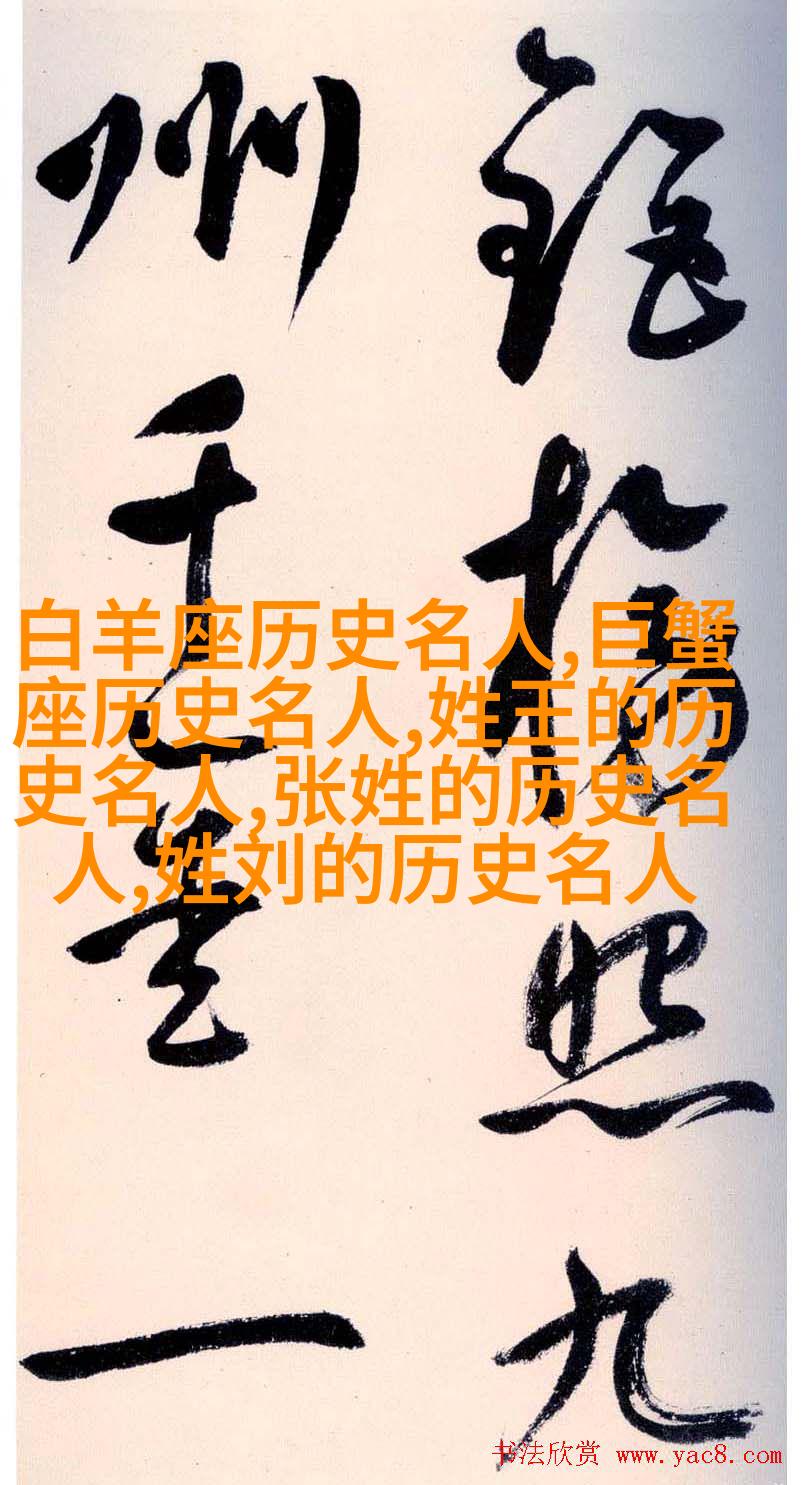 照九
州千一
白羊座历史名人,巨蟹
座历史名人,姓王的历
史名人,张姓的历史名
人,姓刘的历史名人
书法欣赏 www.yac8.com